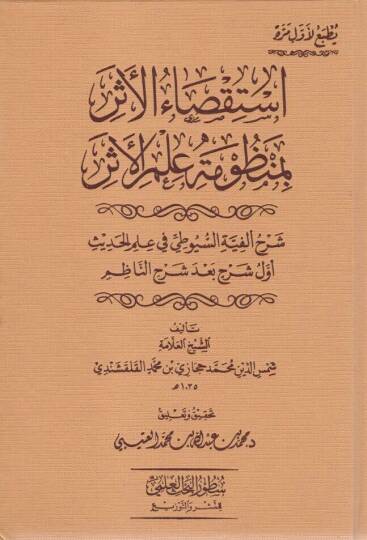 يُطْبَعُ لِأَوَّلِ مَرَّة
اسْتِقْصَاءُ الأَثَرِ
بِمَنْظُومَةِ عِلْمِ الأَثَرِ
شَرْحُ أَلْفِيَّةِ السُّيُوطِيِّ فِي عِلْمِ الحَدِيثِ
أَوَّلُ شَرْحٍ بَعْدَ شَرْحِ النَّاظِمِ
تَأليفُ
الشَّيْخِ العَلَّامَةِ
شَمْسِ الدِّينِ مُحَمَّد حِجَازِي بْنِ مُحَمَّدٍ القَلْقَشَنْدِي
١٠٣٥ هـ
تَحْقِيقُ وَتَعْلِيقُ
د. محمد بن عبدالله بن محمد العتيبي
سطور البحث العلمي
للنشر والتوزيع